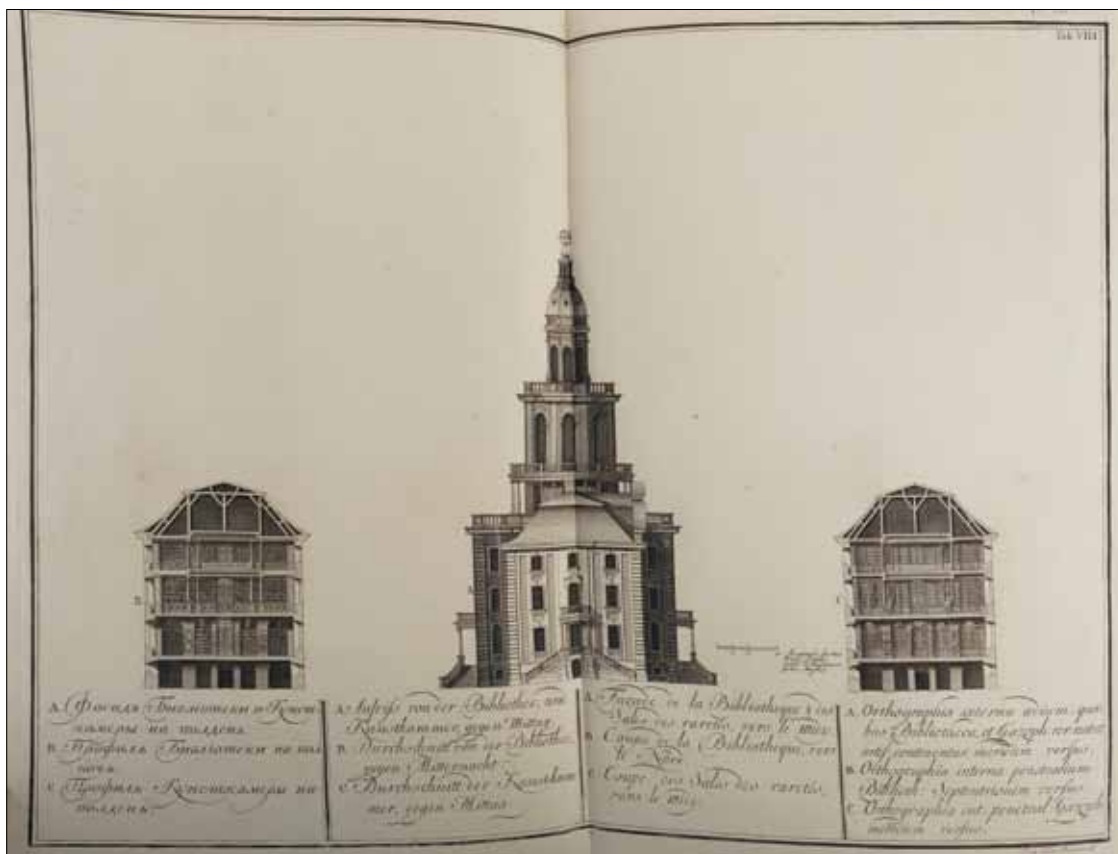 Tab. VIII
A. Фасадъ Библиотеки и Кунст
камеры на полдень
B. Профиль Библиотеки на пол
ночь.
C. Профиль Кунсткамеры на
полдень.
A. Aufriss von der Bibliothec, und
Kunstkammer, gegen Mittag
B. Durchschnitt von der Bibliothec
gegen Mitternacht
C. Durchschnitt der Kunstkam
mer, gegen Mittag
A. Façade de la Bibliotheque & des
Sales des raretés, vers le midy.
B. Coupe de la Bibliotheque, vers
le Nort
C. Coupe des Sales des raretés,
vers le midy.
A. Orthographia externa aedium, qui
bus Bibliotheca, et
continentur meridiem versus,
B. Orthographia interna
Biblioth. Septentrionem versus
C. Orthographia int.
meridiem versus.